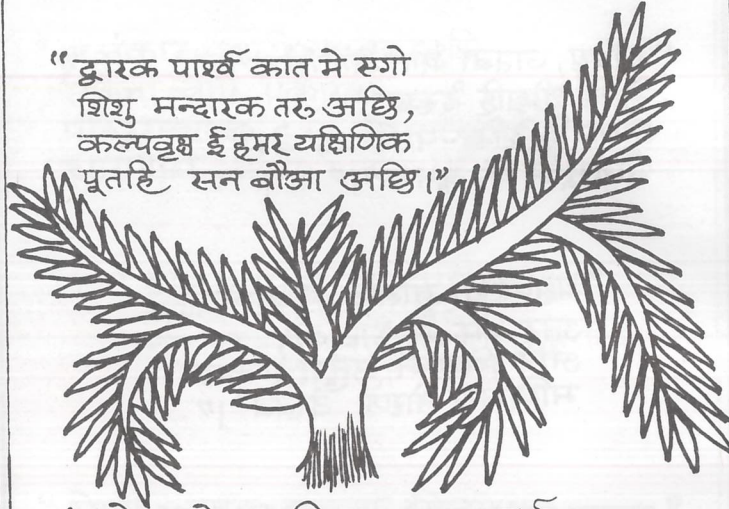 “ द्वारक पार्श्व कात मे एगो
शिशु मन्दारक तरु अछि,
कल्पवृक्ष ई हमर यक्षिणिक
पूतहि सन बौआ अछि।”